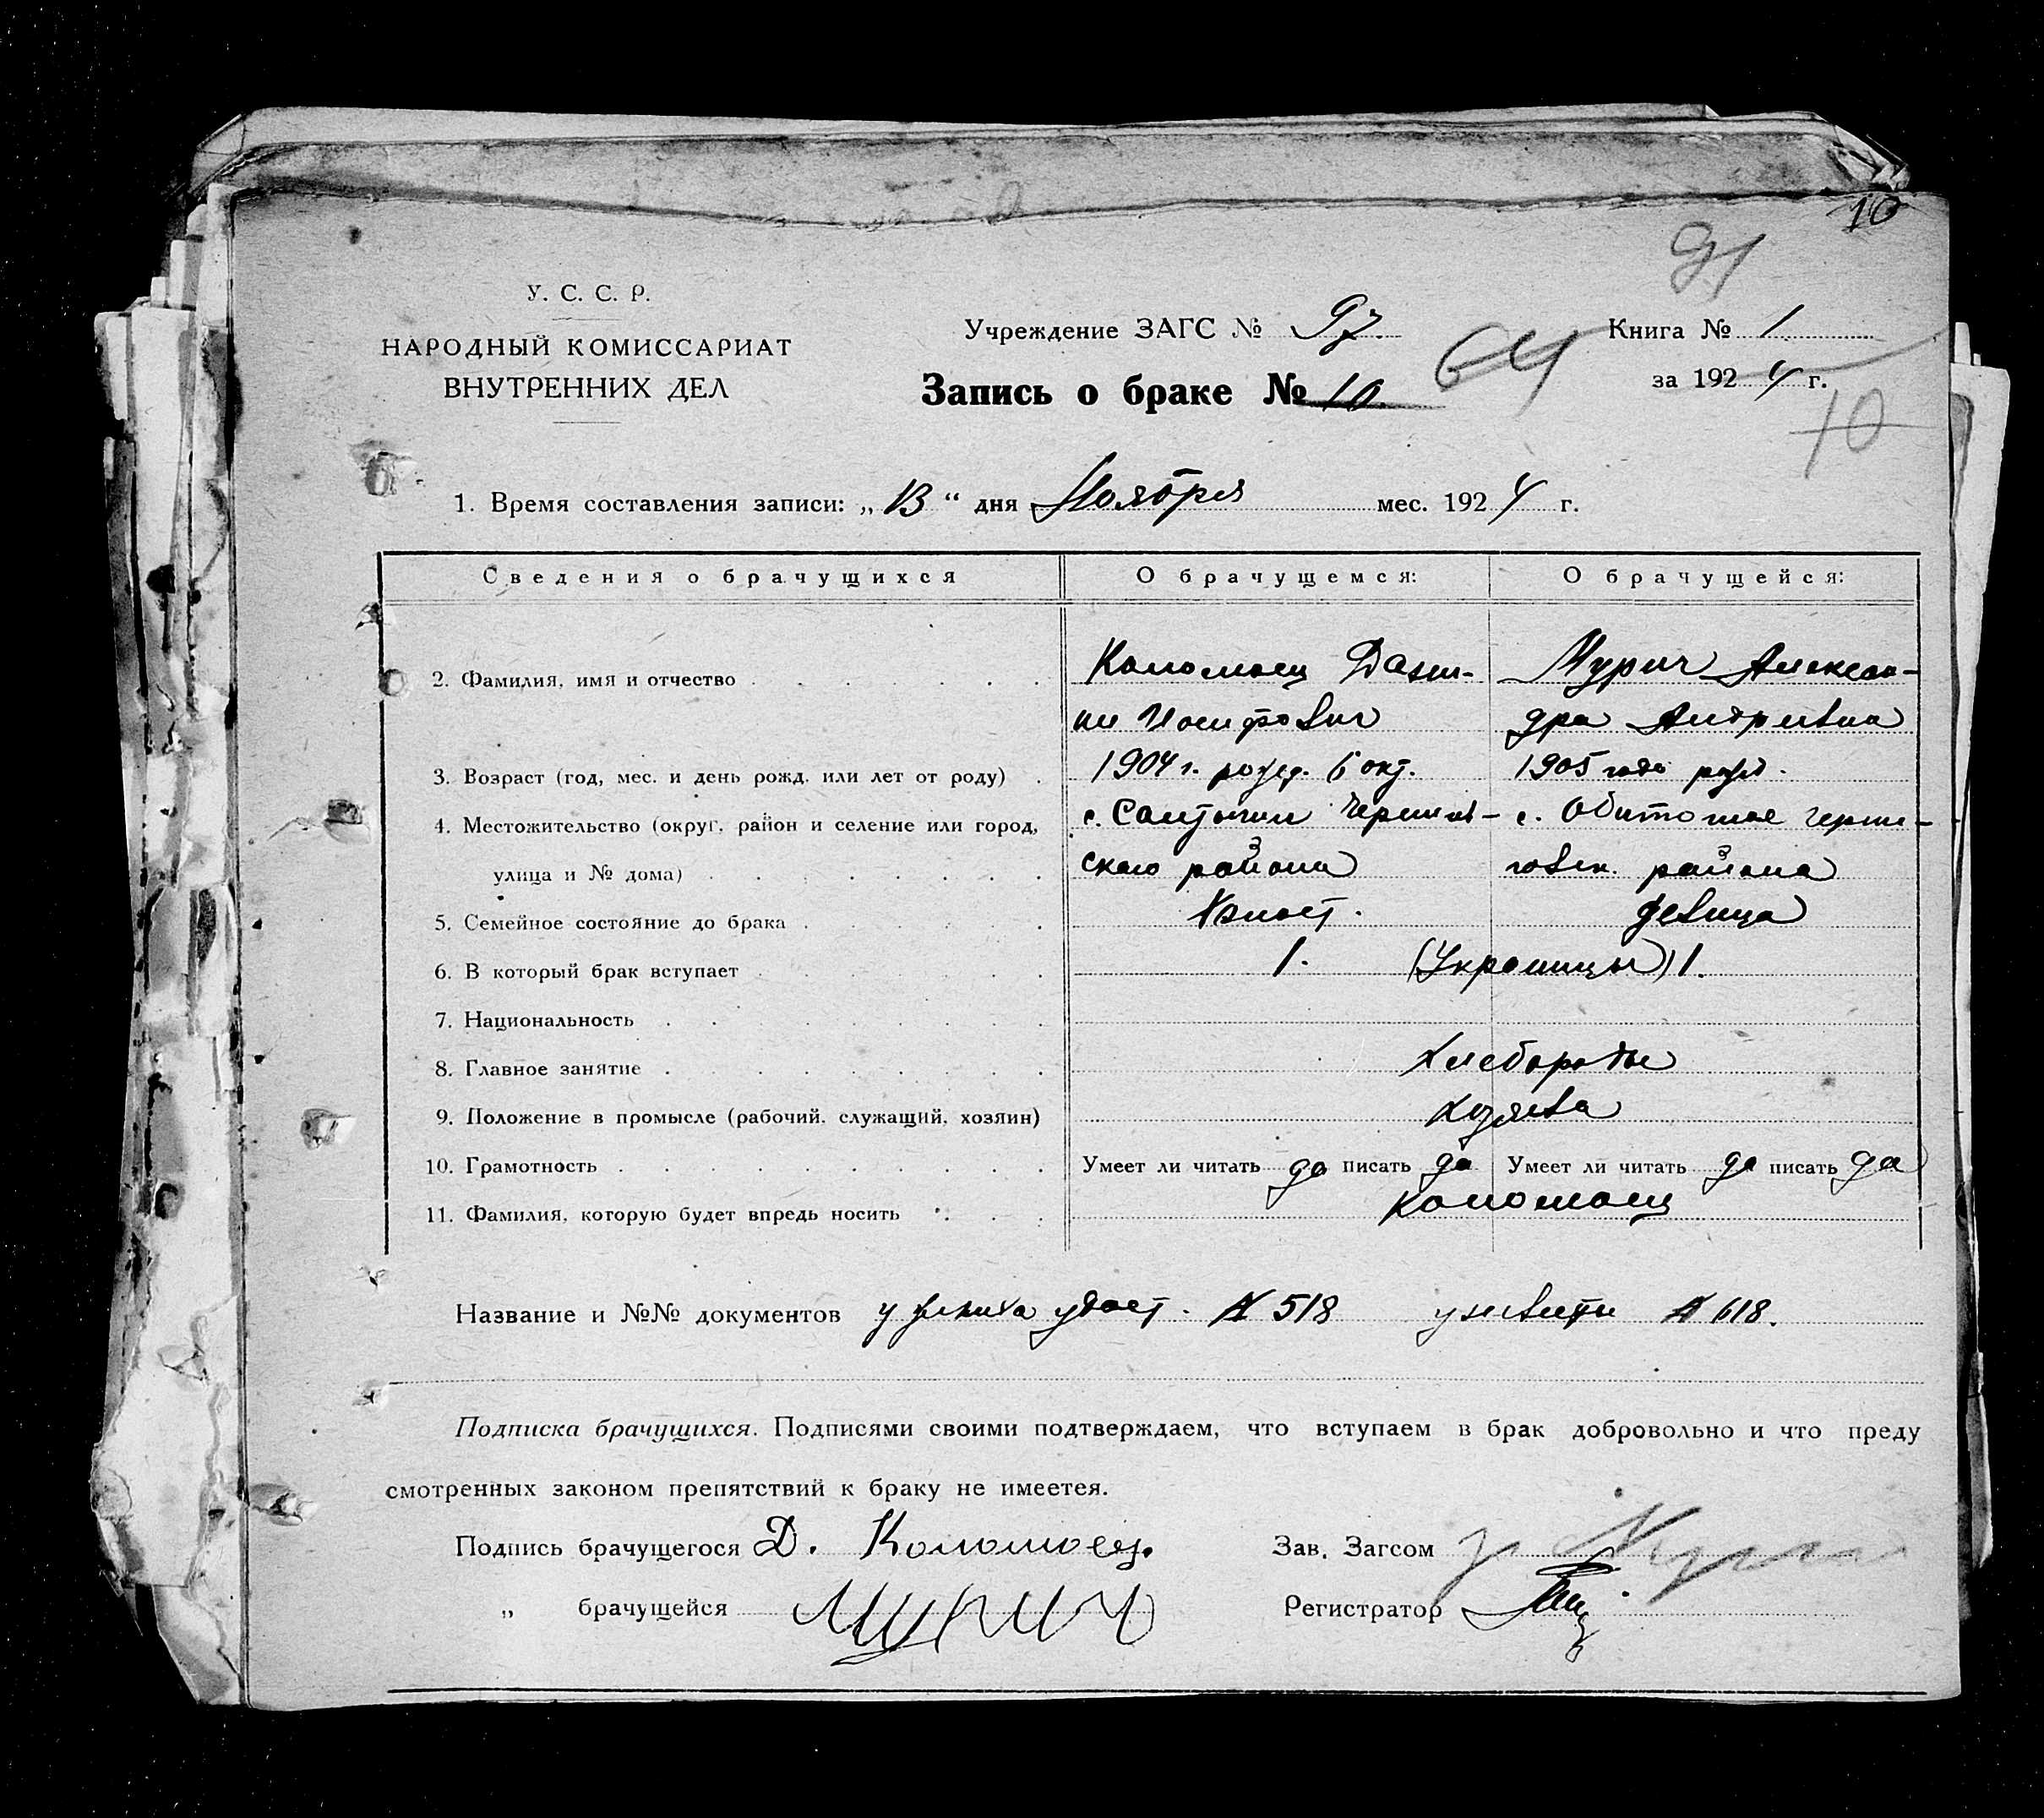 10
91
У. С. С. Р.
НАРОДНЫЙ КОМИССАРИАТ
ВНУТРЕННИХ ДЕЛ
Учреждение ЗАГС № 97.
Книга № 1
Запись о браке № 10. 64
за 1924 г.
10
1. Время составления записи: „13“ дня Ноября мес. 1924 г.
Сведения о брачущихся О брачущемся: О брачущейся:
2. Фамилия, имя и отчество Коломоец Дани- Мурич Алексан-
ил Иосифович дра Андреевна
3. Возраст (год, мес. и день рожд. или лет от роду) 1904 г. рожд. 6 окт. 1905 года рожд.
4. Местожительство (округ, район и селение или город, с. Салтычии Чернигов- с. Обиточное Черни-
улица и № дома) ского района говск. района
5. Семейное состояние до брака холост. девица
6. В который брак вступает 1. (Украинцы) 1.
7. Национальность
8. Главное занятие Хлеборобы
9. Положение в промысле (рабочий, служащий, хозяин) хозяева
10. Грамотность Умеет ли читать да писать да Умеет ли читать да писать да
11. Фамилия, которую будет впредь носить Коломоец
Название и №№ документов у жениха удост. № 518 у невесты № 618.
Подписка брачущихся. Подписями своими подтверждаем, что вступаем в брак добровольно и что преду
смотренных законом препятствий к браку не имеетея.
Подпись брачущегося Д. Коломоец.
Зав. Загсом
„ брачущейся Мурич
Регистратор